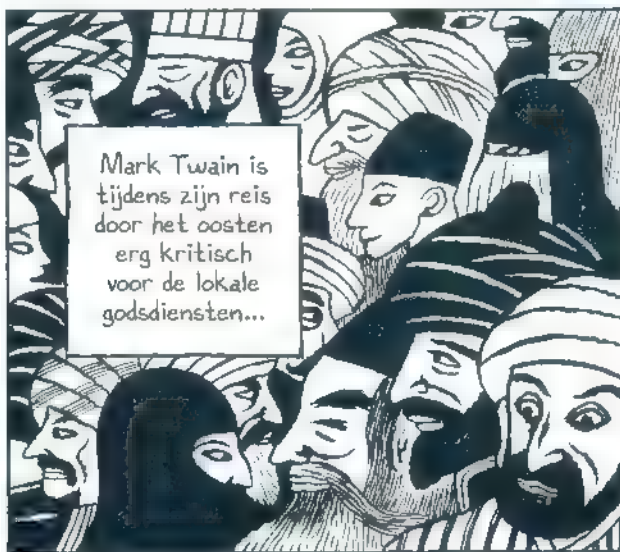 Mark Twain is
tijdens zijn reis
door het oosten
erg kritisch
voor de lokale
godsdiensten...